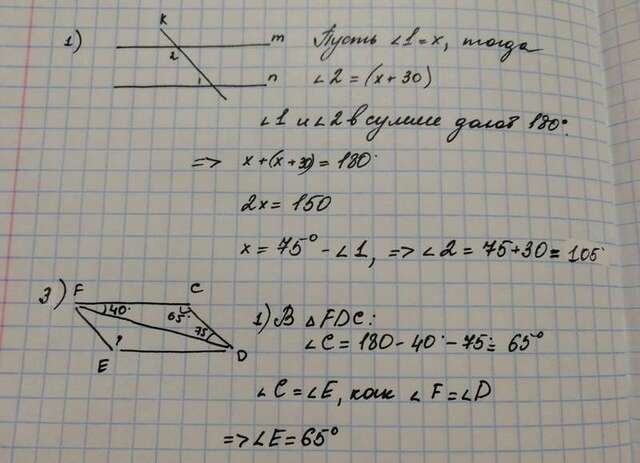 1)
K
m
2
1
n
Пусть ∠1=x, тогда
∠2 = (x+30)
∠1 и ∠2 в сумме дают 180°.
=> x+(x+30)=180°
2x=150
x=75° - ∠1, => ∠2=75+30=105°
3)
F C
40° 65° 75
? E D
1) В △FDC:
∠C=180-40°-75=65°
∠C=∠E, как ∠F=∠D
=>∠E=65°